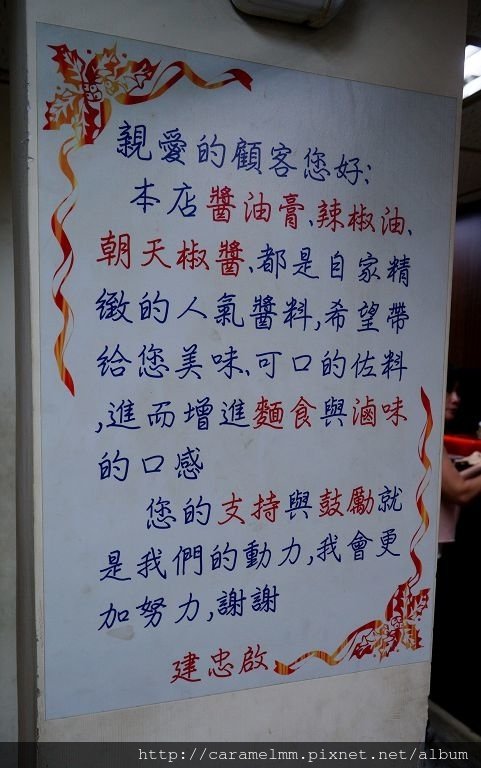 親愛的顧客您好:
本店醬油膏、辣椒油、
朝天椒醬、都是自家精
緻的人氣醬料,希望帶
給您美味、可口的佐料
,進而增進麵食與滷味
的口感
您的支持與鼓勵就
是我們的動力,我會更
加努力,謝謝
建忠啟
http://caramelmm.pixnet.net/album